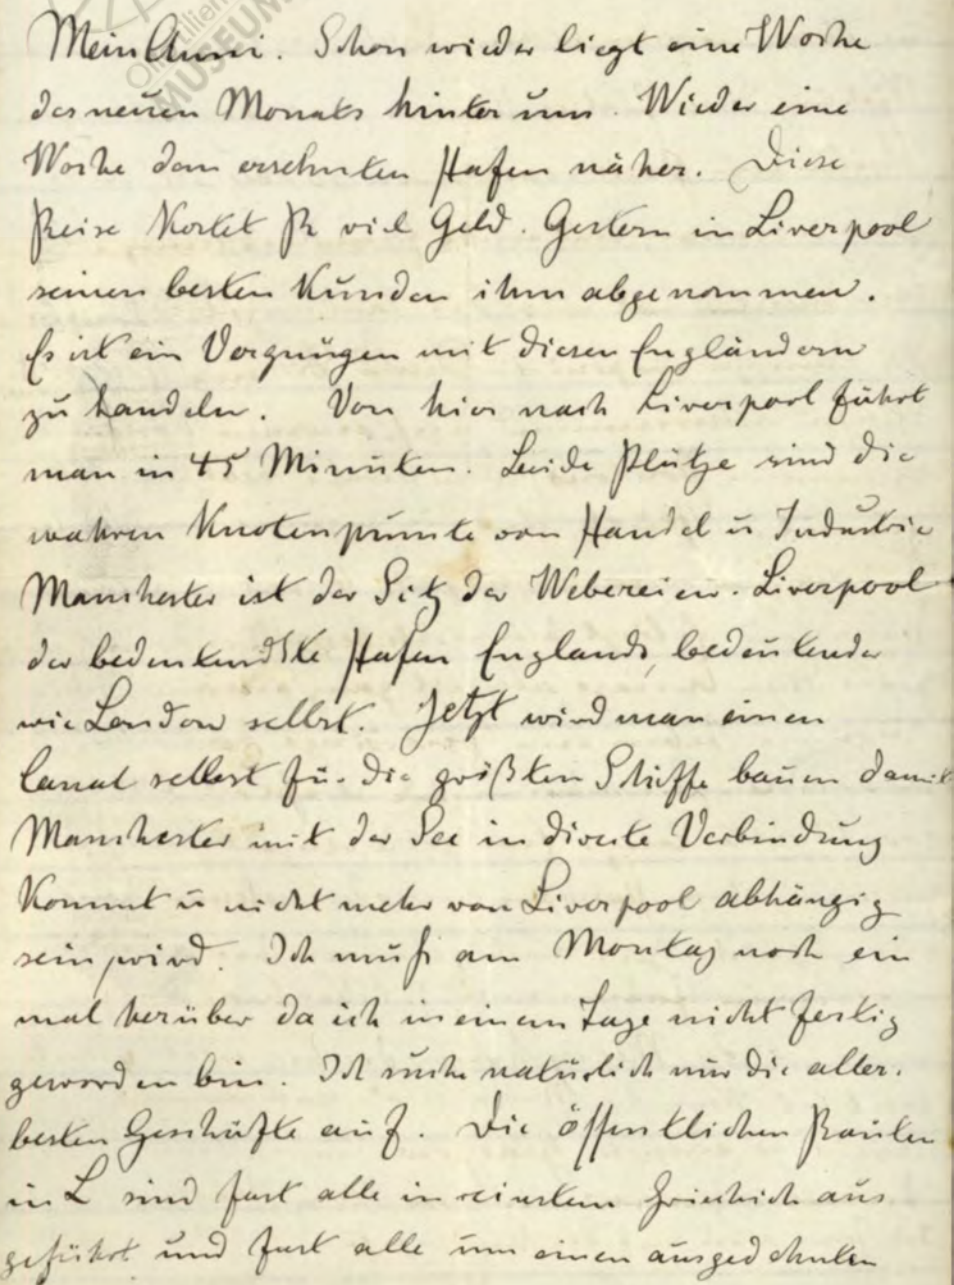 Mein Anni. Schon wieder liegt eine Woche
des neuen Monats hinter uns. Wieder eine
Woche dem ersehnten Hafen näher. Diese
Reise kostet R viel Geld. Gestern in Liverpool
seinen besten Kunden ihm abgenommen.
Es ist ein Vergnügen mit diesen Engländern
zu handeln. Von hier nach Liverpool fährt
man in 45 Minuten. Beide Plätze sind die
wahren Knotenpunkte von Handel u Industrie
Manchester ist der Sitz der Webereien. Liverpool
der bedeutendste Hafen Englands, bedeutender
wie London selbst. Jetzt wird man einen
Canal selbst für die größten Schiffe bauen damit
Manchester mit der See in directe Verbindung
kommt u nicht mehr von Liverpool abhängig
sein wird. Ich muß am Montag noch ein
mal herüber da ich in einem Tage nicht fertig
geworden bin. Ich suche natürlich nur die aller-
besten Geschäfte auf. Die öffentlichen Bauten
in L sind fast alle in reinstem Griechisch aus
geführt und fast alle um einen ausgedehnten
MUSEUM